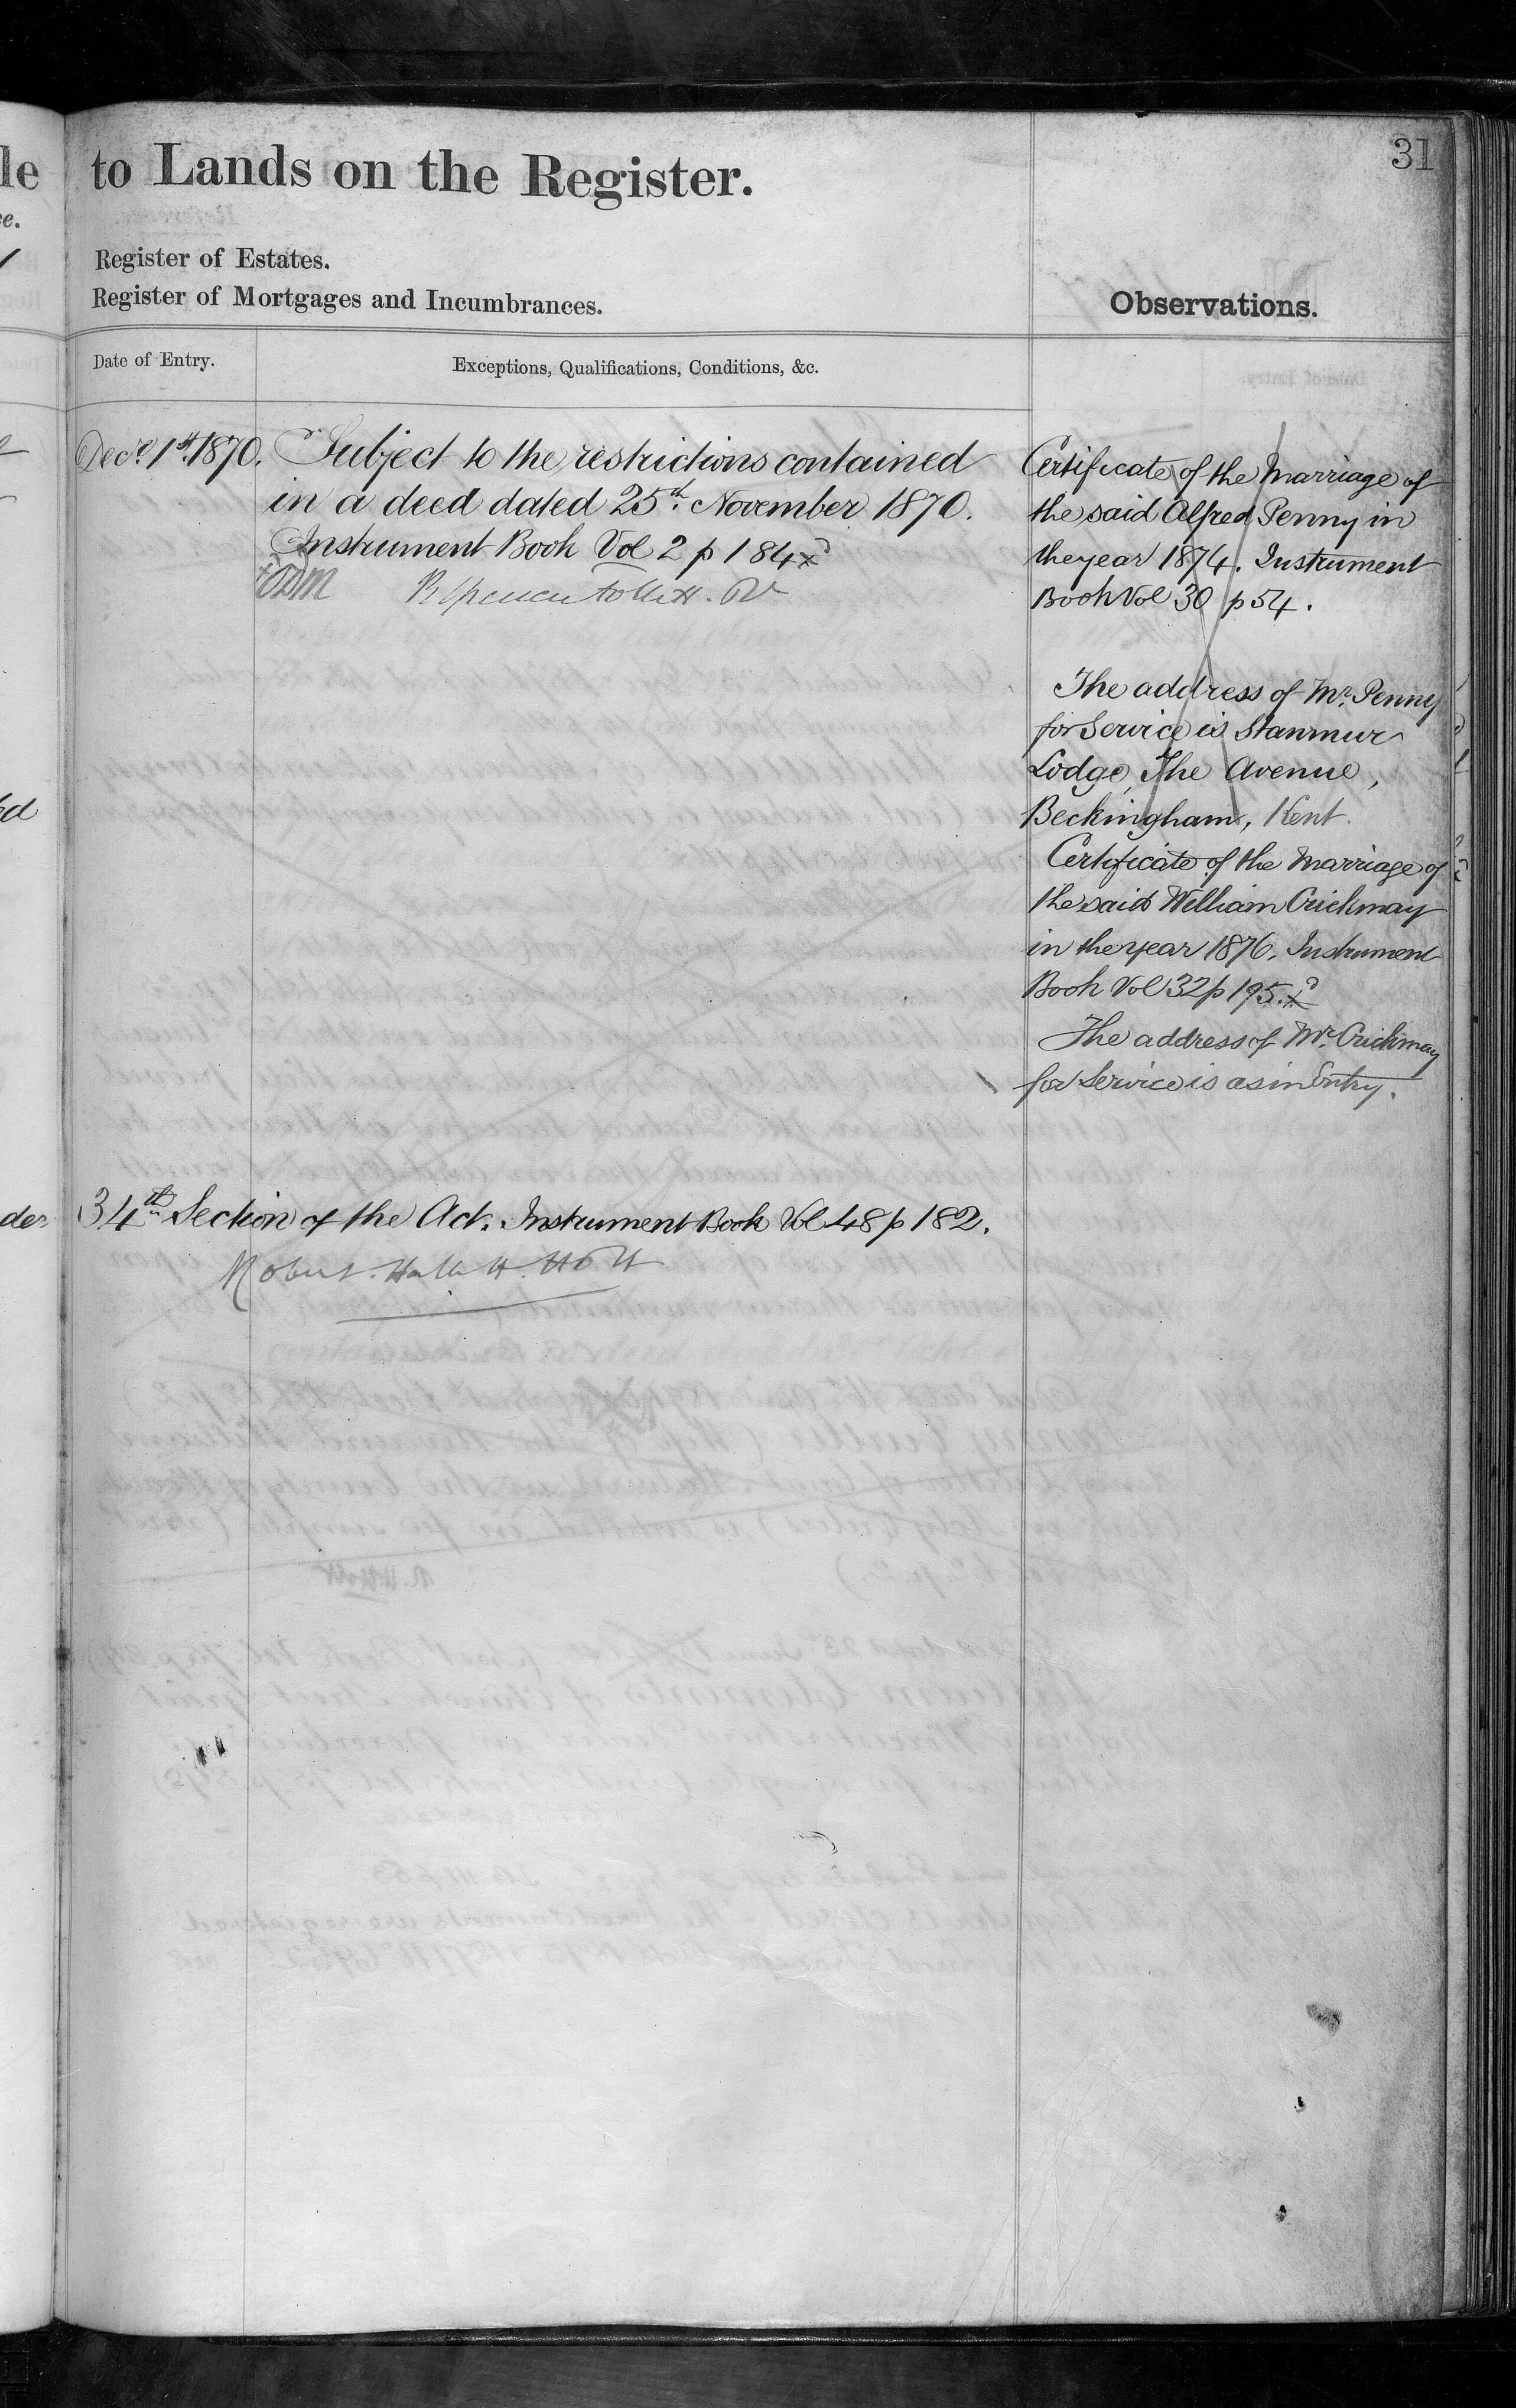 31
to Lands on the Register.
Register of Estates.
Register of Mortgages and Incumbrances.
Observations.
Date of Entry.
Exceptions, Qualifications, Conditions, &c.
Decr. 1st. 1870. Subject to the restrictions contained
in a deed dated 25th. November 1870.
Instrument Book Vol 2 p 184 xd
Certificate of the Marriage of
the said Alfred Penny in
the year 1874. Instrument
Book Vol 30 p 54.
The address of Mr. Penny
for Service is Stanmur
Lodge, The Avenue,
Beckingham, Kent.
Certificate of the Marriage of
the said William Crickmay
in the year 1876. Instrument
Book Vol 32 p 195. xd
The address of Mr. Crickmay
for Service is as in Entry.
34th Section of the Act. Instrument Book Vol 48 p 182.
Robert. Hallett. Holt